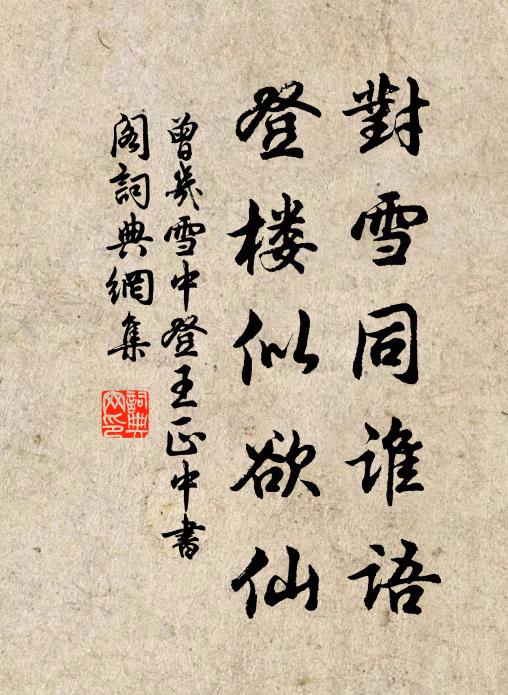 對雪同誰語
登楼似欲仙
曾幾雪中登王正中書
阁詞典網集
詞典
网印